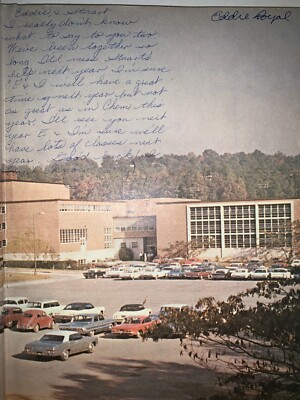 Eddie Royal
Eddie, & Stuart
I really don't know
what to say to you two.
We've been together so
long. I'll miss Stuart's
help next year. I'm sure
"E" & I will have a great
time next year but not
as great as in Chem this
year. I'll see you next
year E & I'm sure we'll
have lots of classes next
year. Good luck